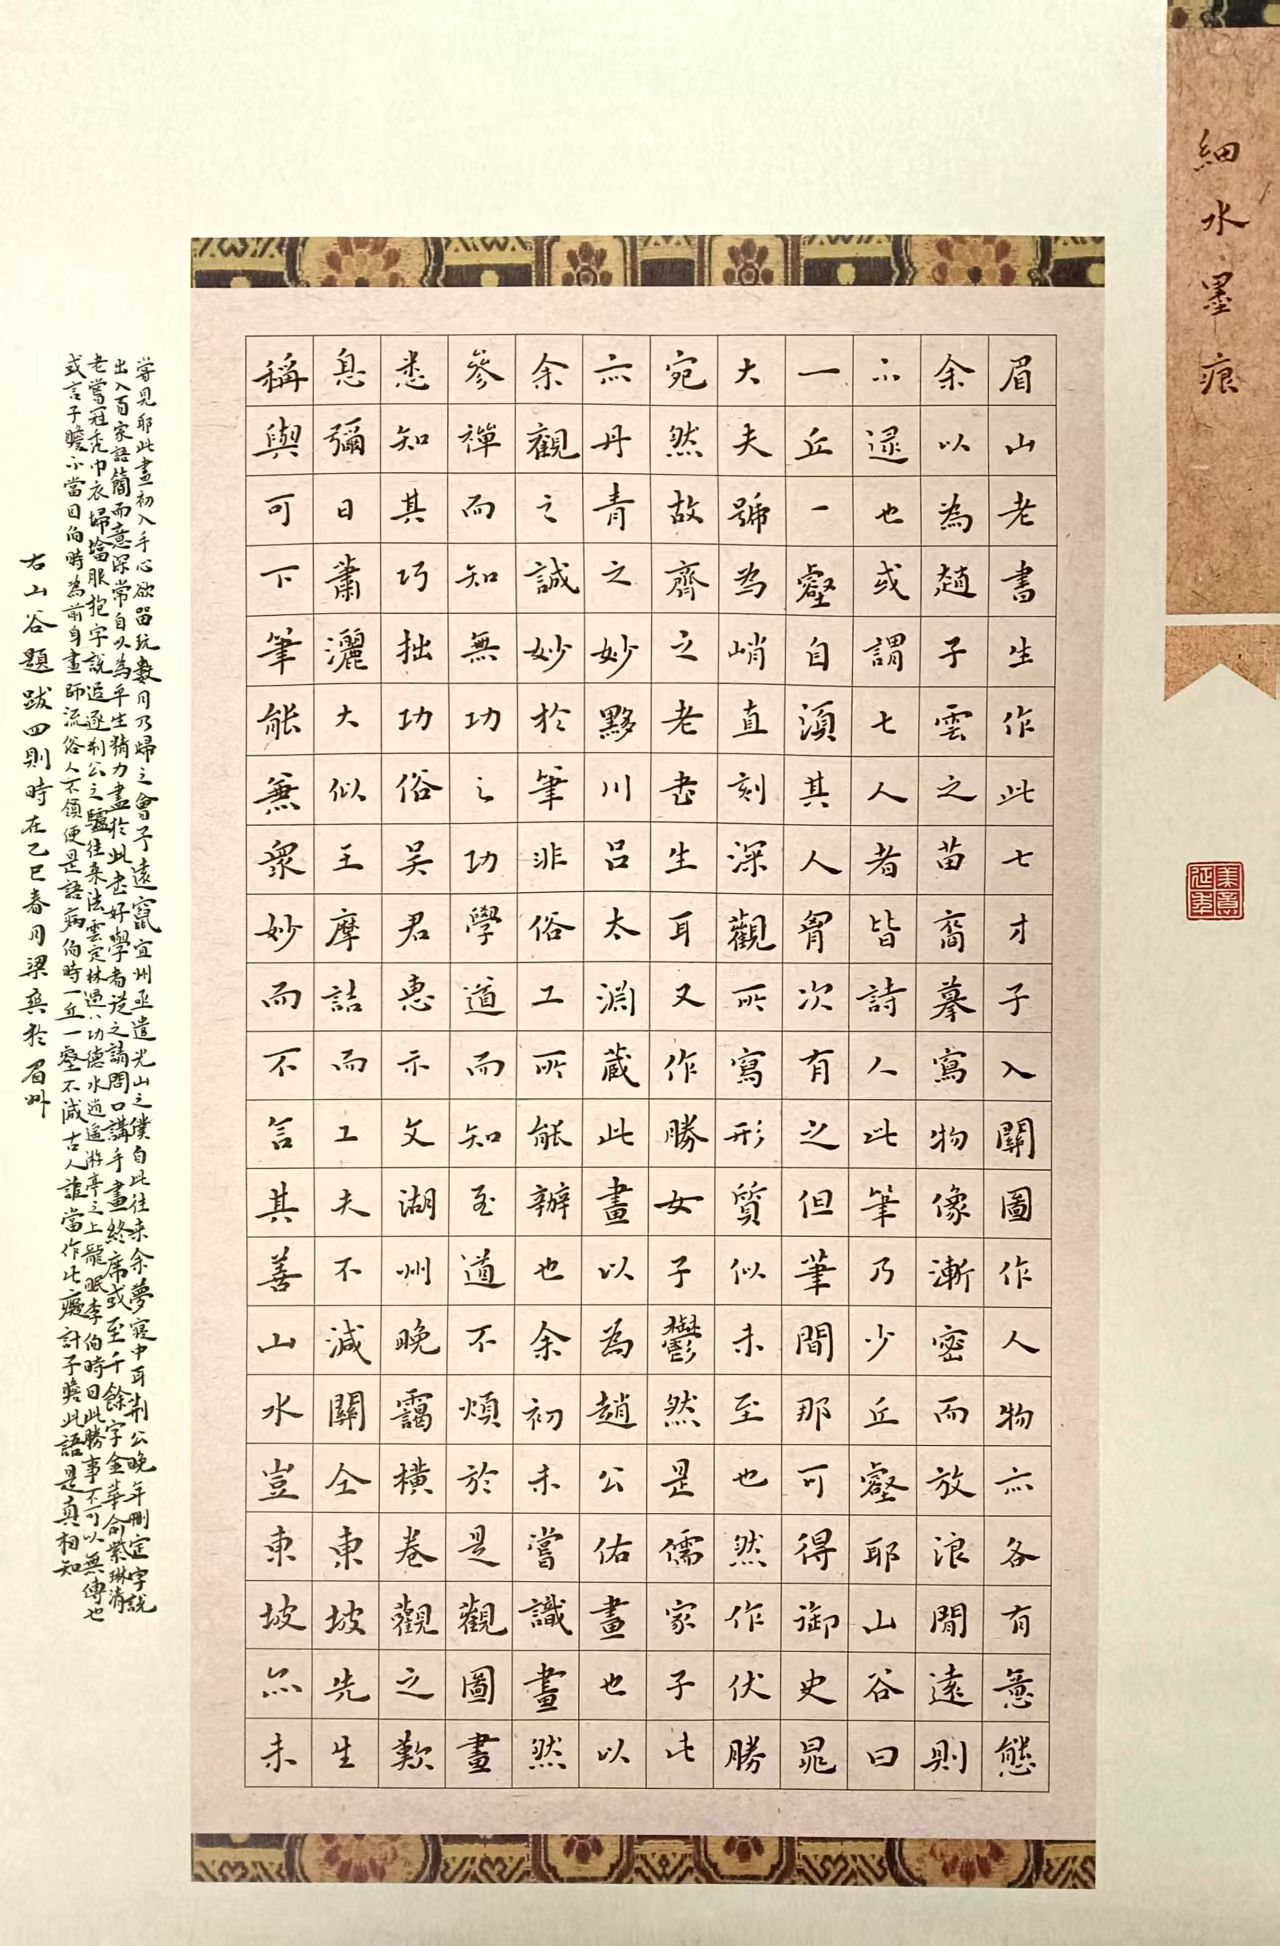 細水墨痕
美意延年
眉山老書生作此七才子入關圖作人物亦各有意態
余以為趙子雲之苗裔摹寫物像漸密而放浪閒遠則
不逮也或謂七人者皆詩人此筆乃少丘壑耶山谷曰
一丘一壑自須其人胷次有之但筆間那可得御史晁
大夫號為峭直刻深觀所寫形質似未至也然作伏勝
宛然故齊之老書生耳又作勝女子鬱然是儒家子此
亦丹青之妙黟川呂太淵蔵此畫以為趙公佑畫也以
余觀之誠妙於筆非俗工所能辦也余初未嘗識畫然
參禪而知無功之功學道而知至道不煩於是觀圖畫
悉知其巧拙功俗吴君惠示文湖州晚靄橫卷觀之歎
息彌日蕭灑大似王摩詰而工夫不減關仝東坡先生
稱與可下筆能兼衆妙而不言其善山水豈東坡亦未
嘗見耶此畫初入手心欲留玩數月乃歸之會予遠竄宜州亟遣光山之僕自此往来余夢寐中耳荆公晚年刪定字說
出入百家語簡而意深常自以為平生精力盡於此書好學者從之請問口講手畫終席或至千餘字金華俞紫琳清
老嘗冠禿巾衣掃墖服抱字說追逐荆公之驢往来法雲定林過八功德水逍遥游亭之上龍眠李伯時曰此勝事不可以無傳也
或言子瞻不當目伯時為前身畫師流俗人不領便是語病伯時一丘一壑不減古人誰當作此癡計子瞻此語是真相知
右山谷題跋四則時在乙巳春月梁奕於眉州